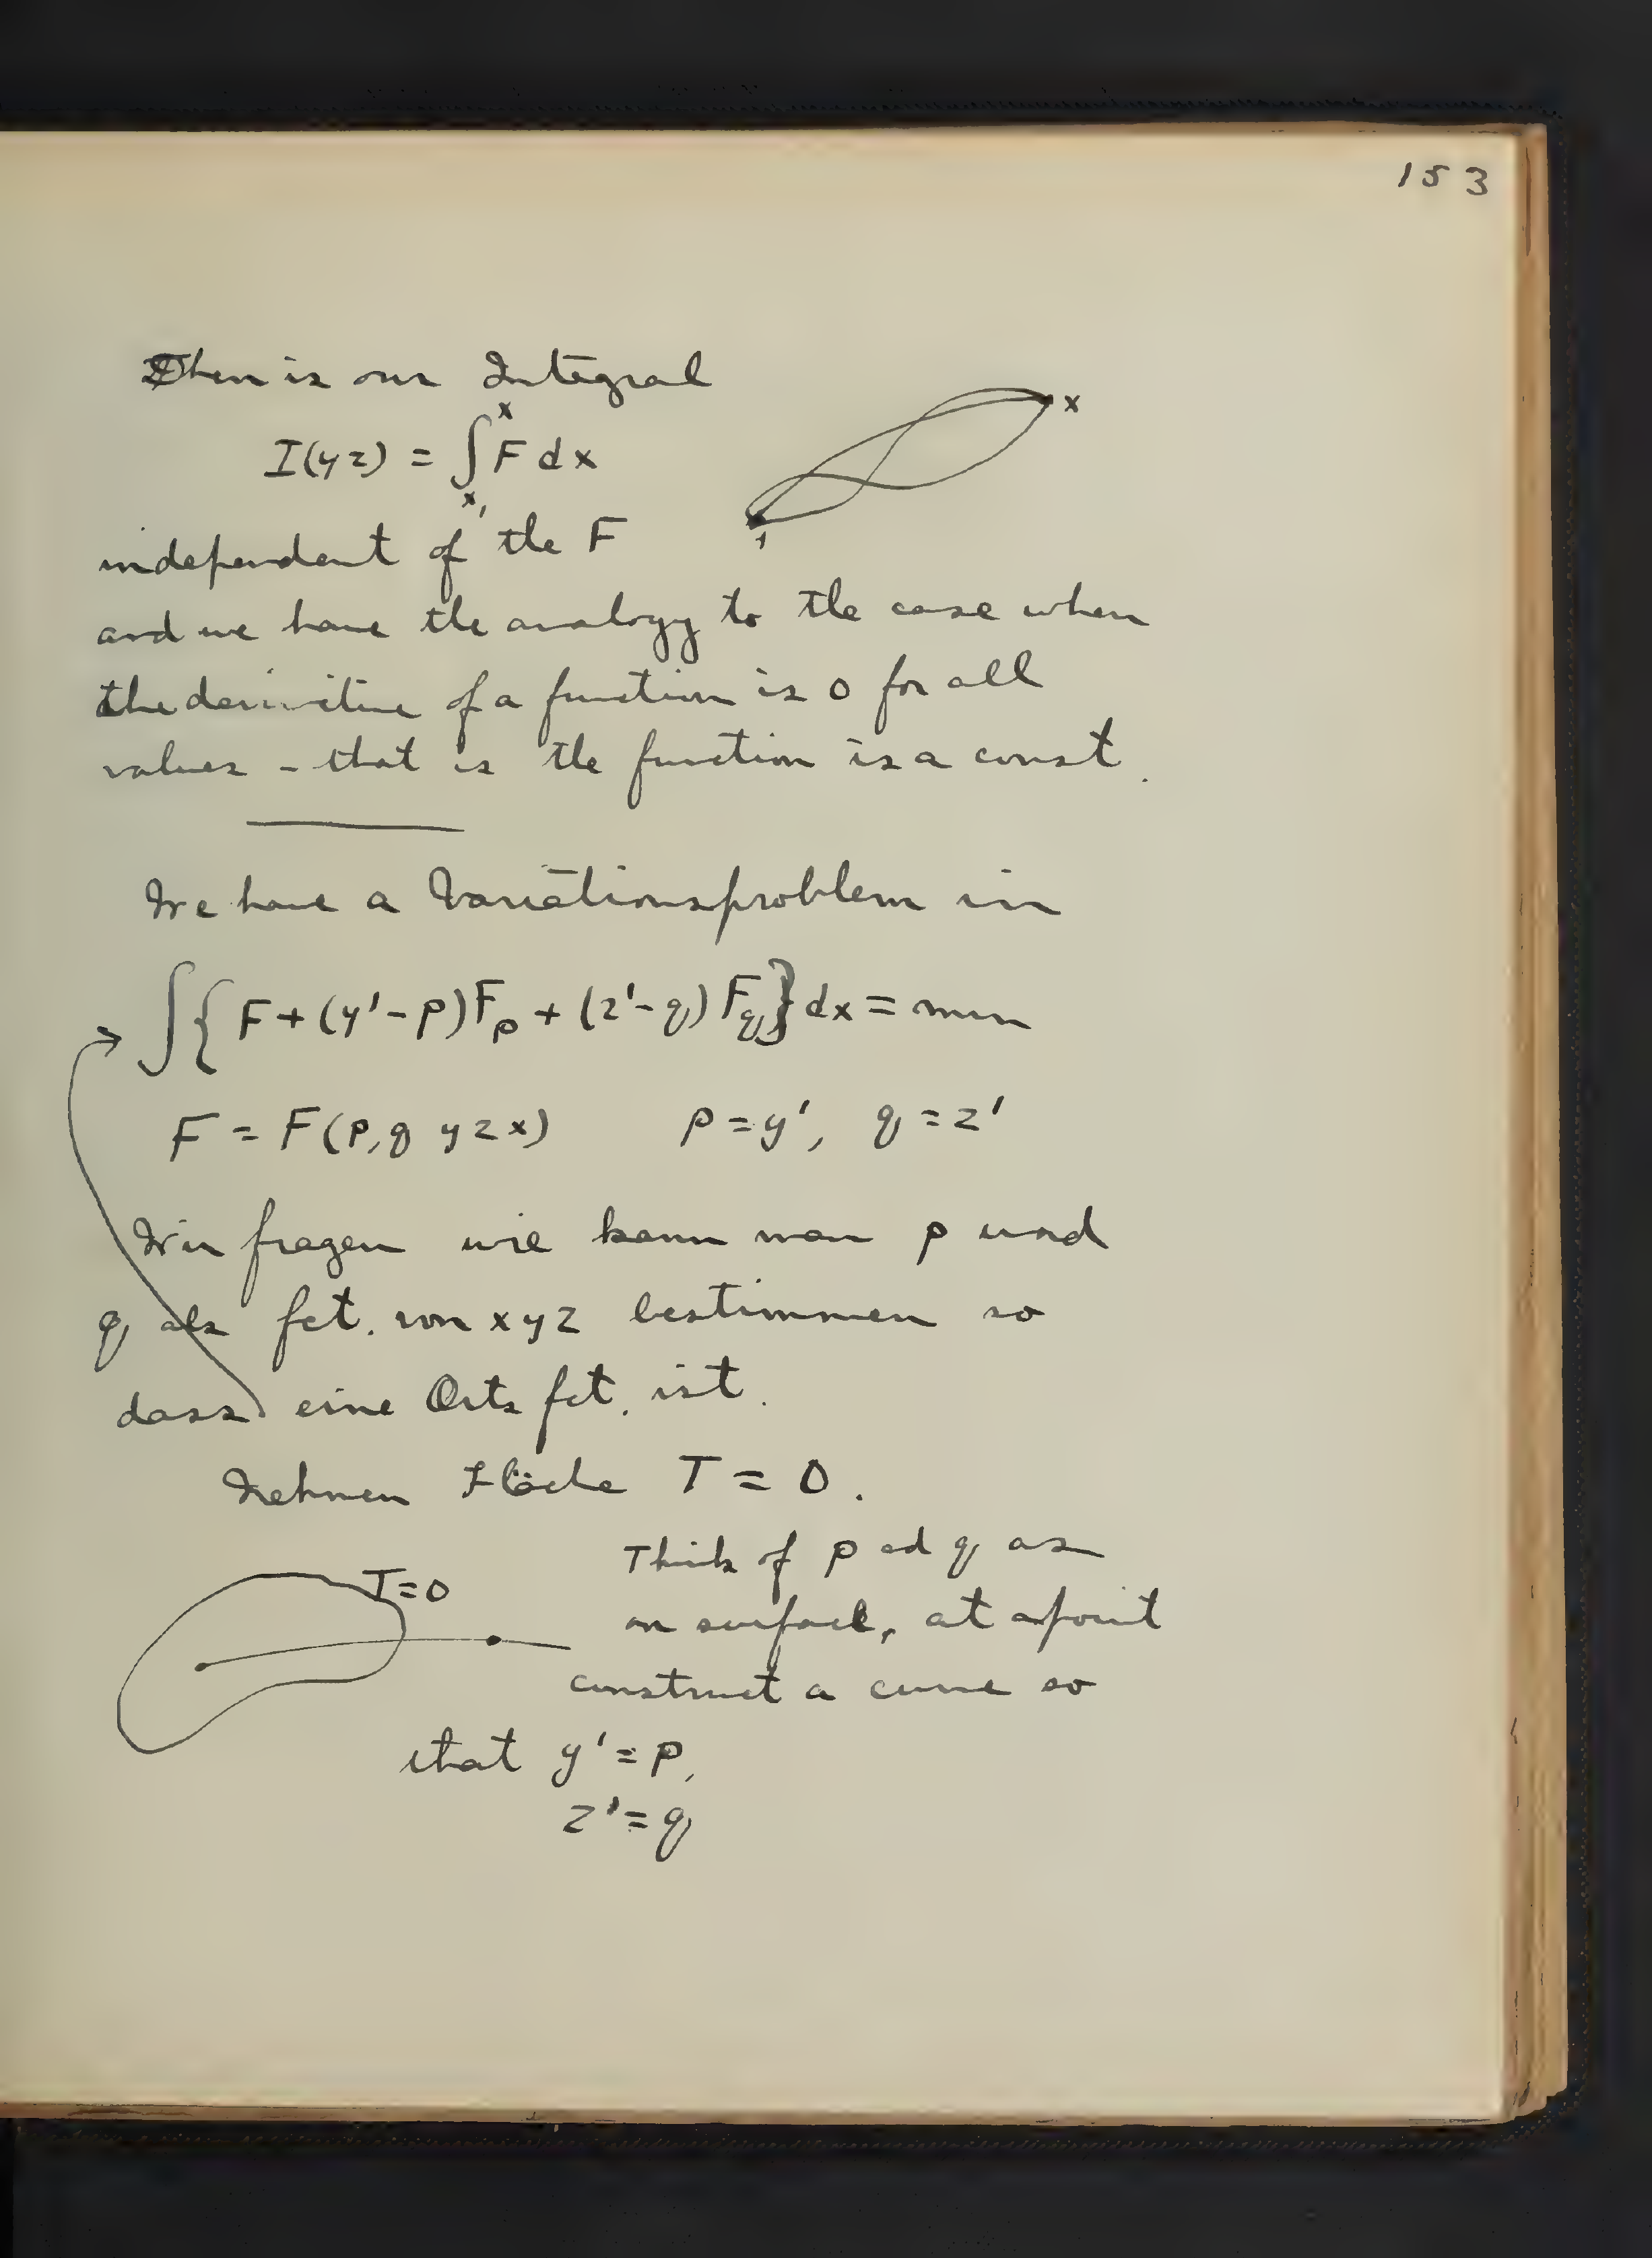 153
Then is our Integral
I(yz) = ∫_{x_1}^{x} F dx
x
1
independent of the F
and we have the analogy to the case when
the derivitive of a function is 0 for all
values - that is the function is a const.
We have a Variationsproblem in
∫{F + (y' - p)F_p + (z' - q)F_q} dx = min
F = F(p, q y z x) p = y', q = z'
Wir fragen wie kann man p und
q als fct. von x y z bestimmen so
dass eine Orts fct. ist.
Nehmen Fläche T = 0.
T = 0
Think of p ad q as
on surface, at a point
construct a curve so
that y' = p,
z' = q